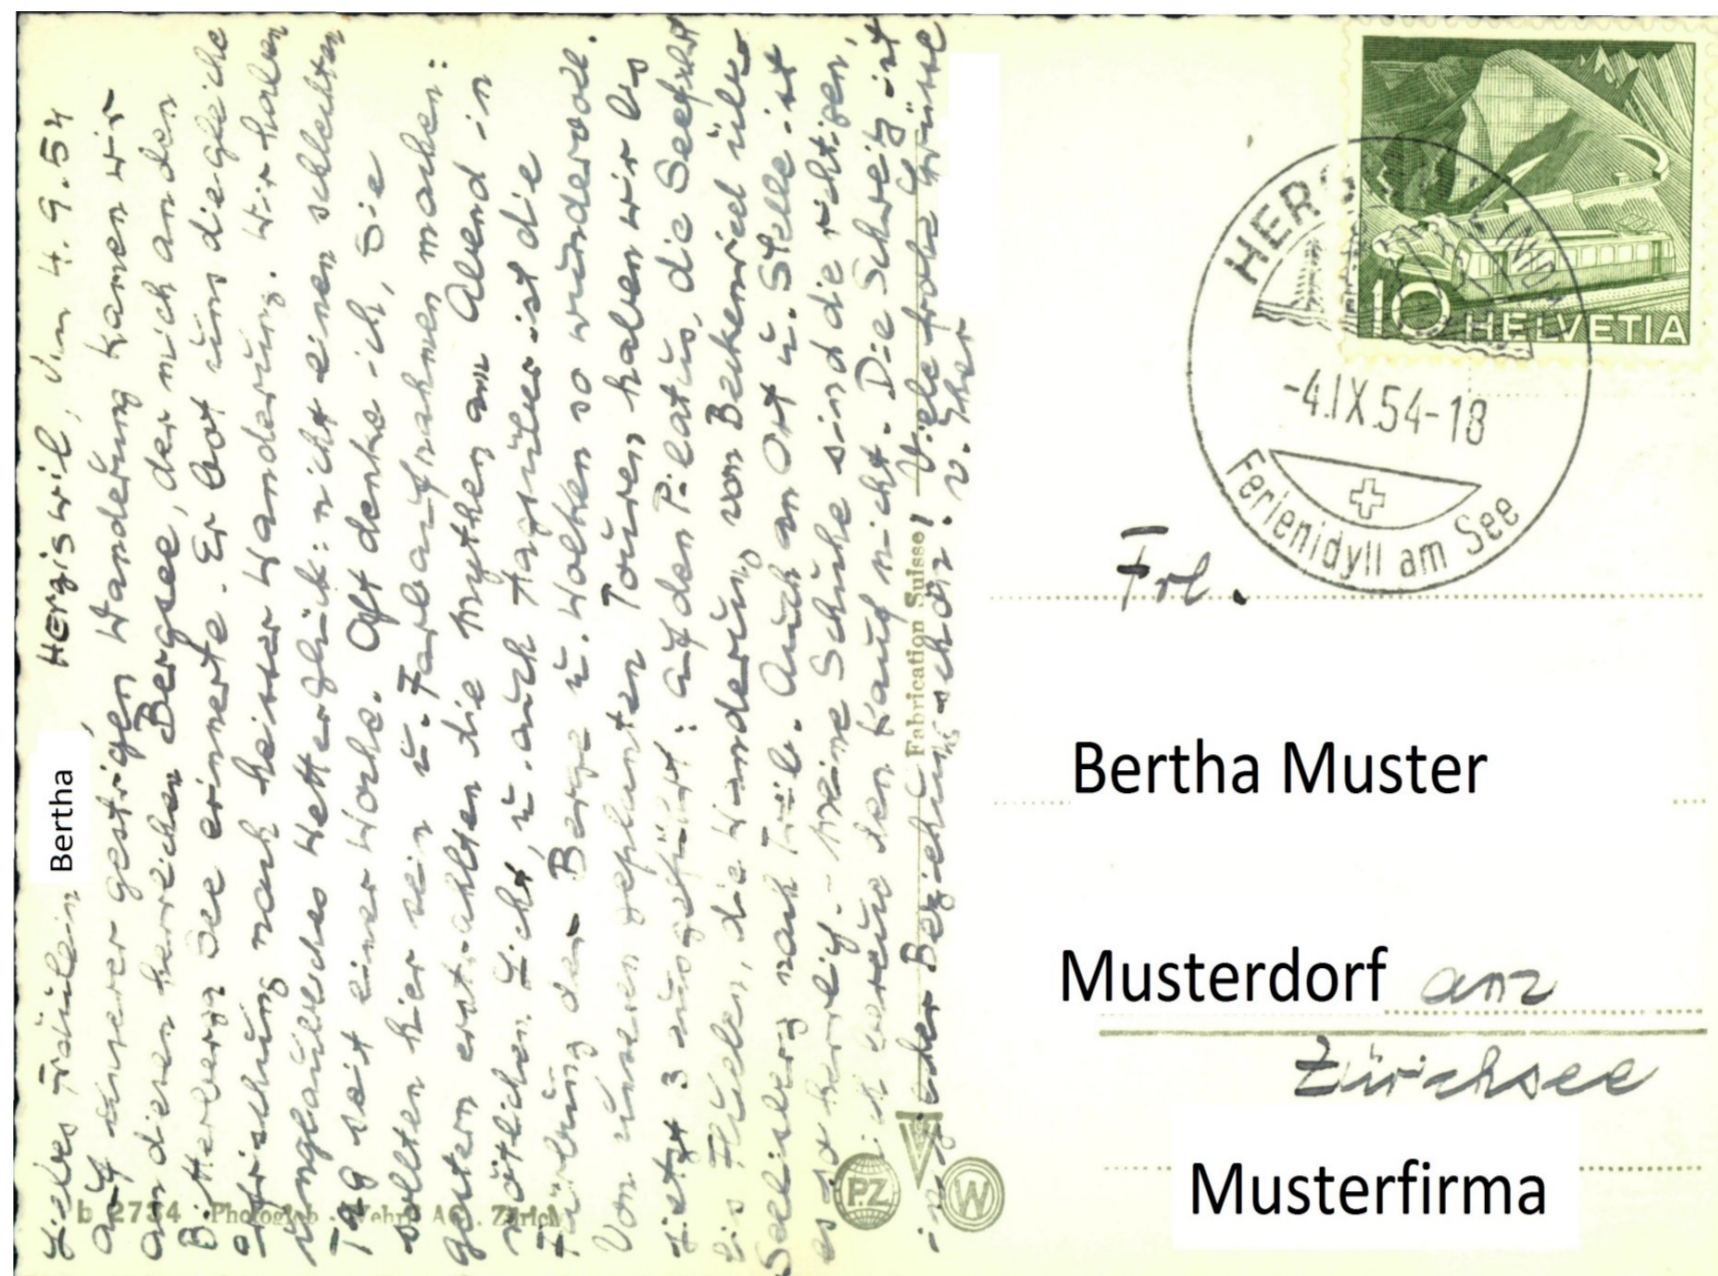 Hergiswil, den 4.9.54
Liebes Fräulein Bertha,
Auf unserer gestrigen Wanderung kamen wir
an diesen herrlichen Bergsee, der mich an den
See erinnerte. Er bot uns die gleiche
Erfrischung nach heisser Wanderung. Wir haben
unglaubliches Wetterglück: nicht einen schlechten
Tag seit einer Woche. Oft denke ich, Sie
sollten hier sein u. Farbaufnahmen machen:
gestern erstrahlten die Mythen am Abend in
rötlichem Licht, u. auch tagsüber ist die
Färbung der Berge u. Wolken so wundervoll.
Von unseren geplanten Touren haben wir bis
jetzt 3 ausgeführt: auf den Pilatus, die Seefahrt
bis Flüelen, die Wanderung von Beckenried über
Seelisberg nach Treib. Auch an Ort u. Stelle ist
es so herrlich. - Meine Schuhe sind die richtigen,
ich bereue den Kauf nicht. Die Schweiz ist
in jeder Beziehung schön. Viele frohe Grüsse
v. Ihrer
b 2734 Photoglob - Wehrli AG. Zürich
Fabrication Suisse
PZ
W
10 HELVETIA
-4.IX.54-18
Ferienidyll am See
Frl.
Bertha Muster
Musterdorf am
Zürichsee
Musterfirma